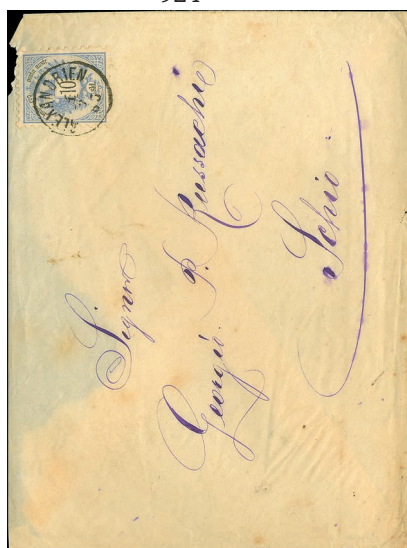 ALEXANDRIEN
10
Signor
Georgio P. Kussachi
Schio